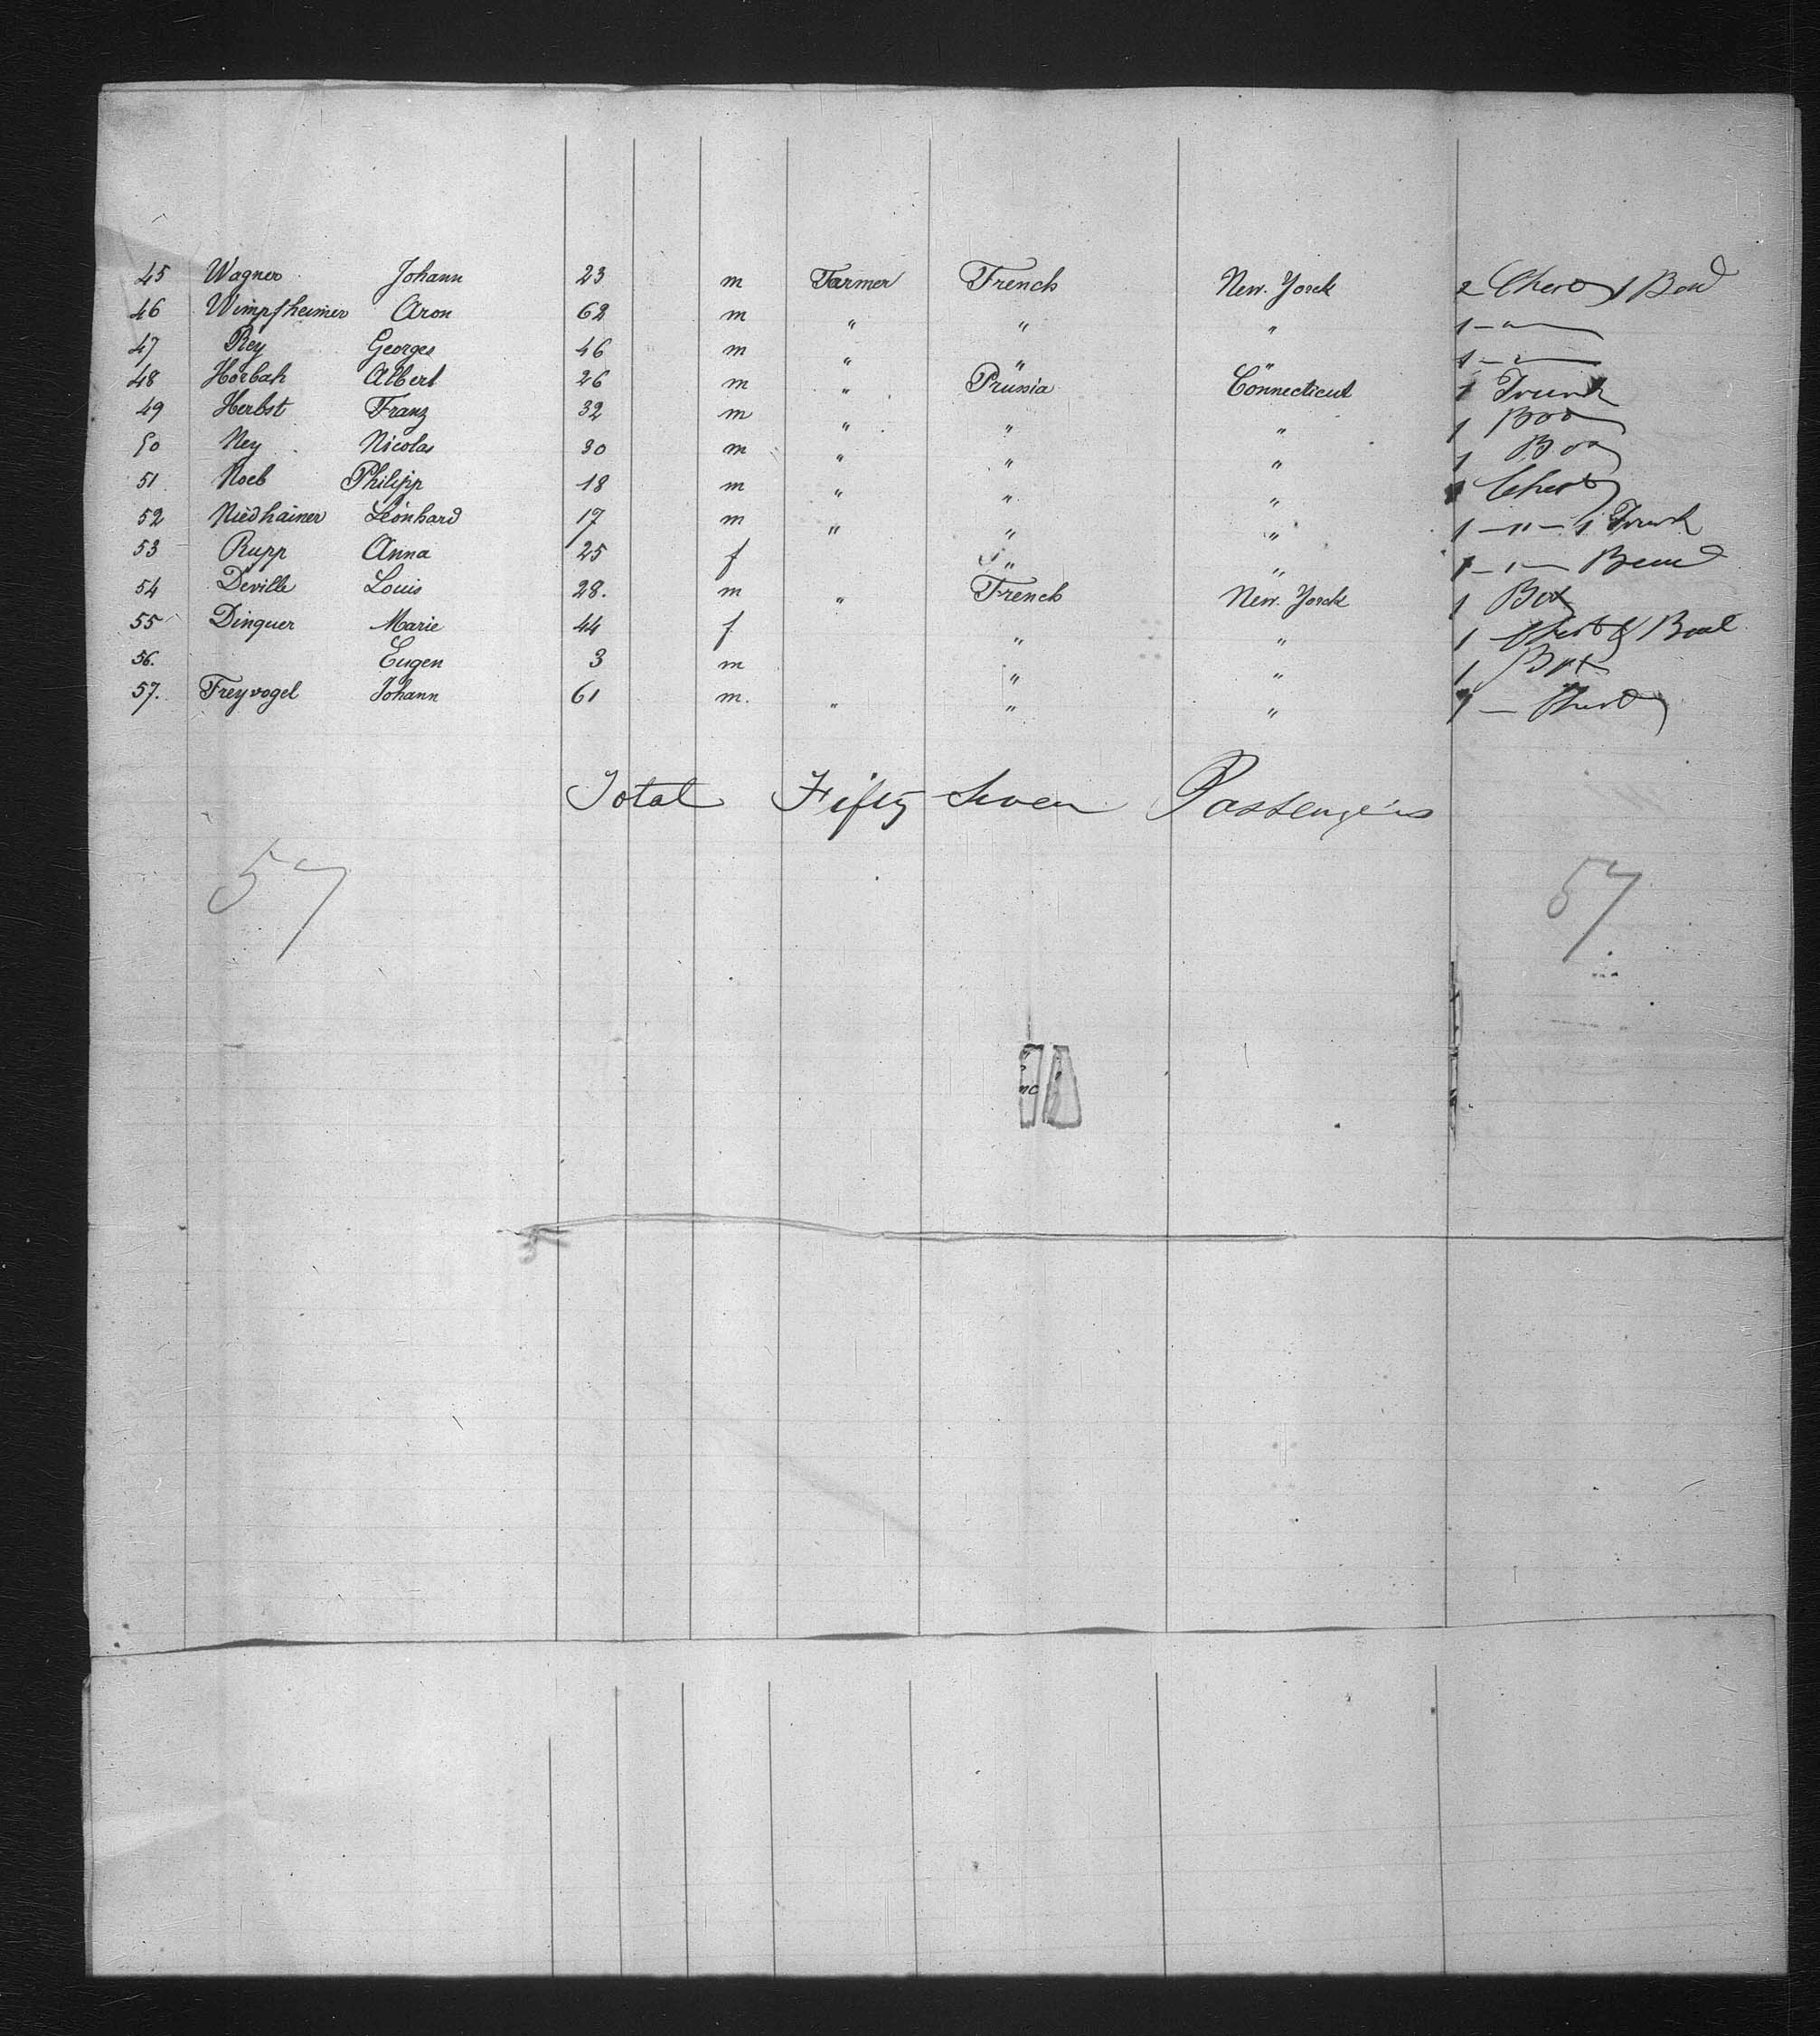 45 Wagner Johann 23 m Farmer French New. Yorck 2 Chest 1 Bed
46 Wimpfheimer Aron 62 m " " " 1 — " —
47 Rey Georges 46 m " " " 1 — " —
48 Horbah Albert 26 m " Prussia Connecticut 1 Trunk
49 Herbst Franz 32 m " " " 1 Box
50 Ney Nicolas 30 m " " " 1 Box
51 Noeb Philipp 18 m " " " 1 Chest
52 Niedhainer Léonhard 17 m " " " 1 — " — 1 Trunk
53 Rupp Anna 25 f " " 1 — " —
54 Deville Louis 28. m " French New. Yorck 1 Box
55 Dinquer Marie 44 f " " 1 Chest &
56. Eugen 3 m " " 1 Box
57. Freyvogel Johann 61 m. " " " 1 — Chest
Total Fifty Seven Passengers
57 57